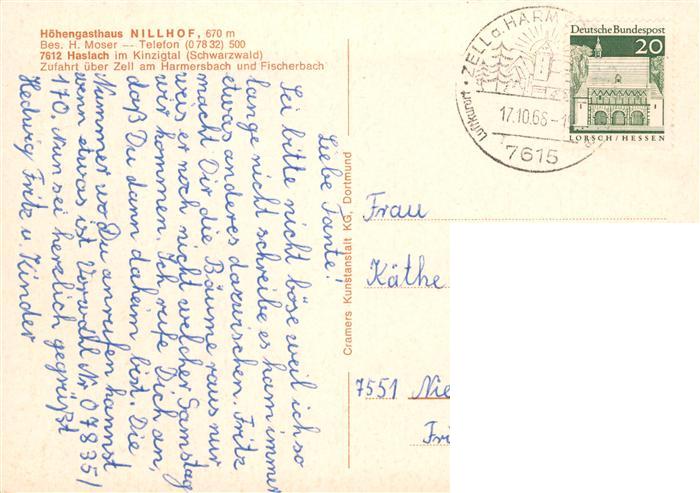 Höhengasthaus NILLHOF, 670 m
Bes. H. Moser — Telefon (0 78 32) 500
7612 Haslach im Kinzigtal (Schwarzwald)
Zufahrt über Zell am Harmersbach und Fischerbach
Liebe Tante!
Sei bitte nicht böse weil ich so
lange nicht schreibe es kam immer
etwas anderes dazwischen. Fritz
macht Dir die Bäume raus nur
weis er noch nicht welcher Samstag
wir kommen. Ich rufe Dich an,
daß Du dann daheim bist. Die
Nummer wo Du anrufen kannst
wenn etwas ist Vorwahl Nr 07835/
170. Nun sei herzlich gegrüßt
Hedwig Fritz u. Kinder
Cramers Kunstanstalt KG, Dortmund
Luftkurort · ZELL a. HARM
17.10.66-1
7615
Deutsche Bundespost
20
LORSCH / HESSEN
Frau
Käthe
7551 Nie
Fri